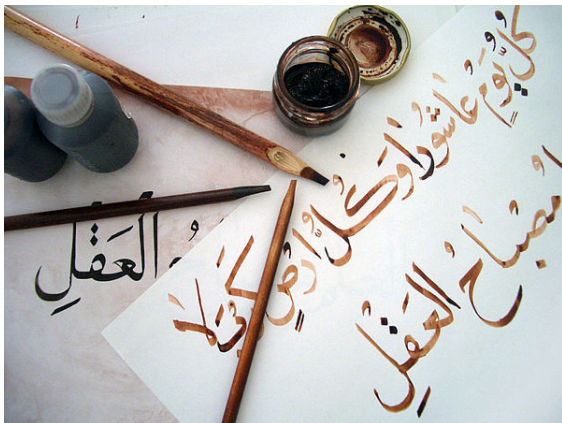 كُلُّ يَومٍ عَاشُورا وَكُلُّ اَرضٍ كَربَلا
مُصبَاحُ العَقلِ
العَقلِ